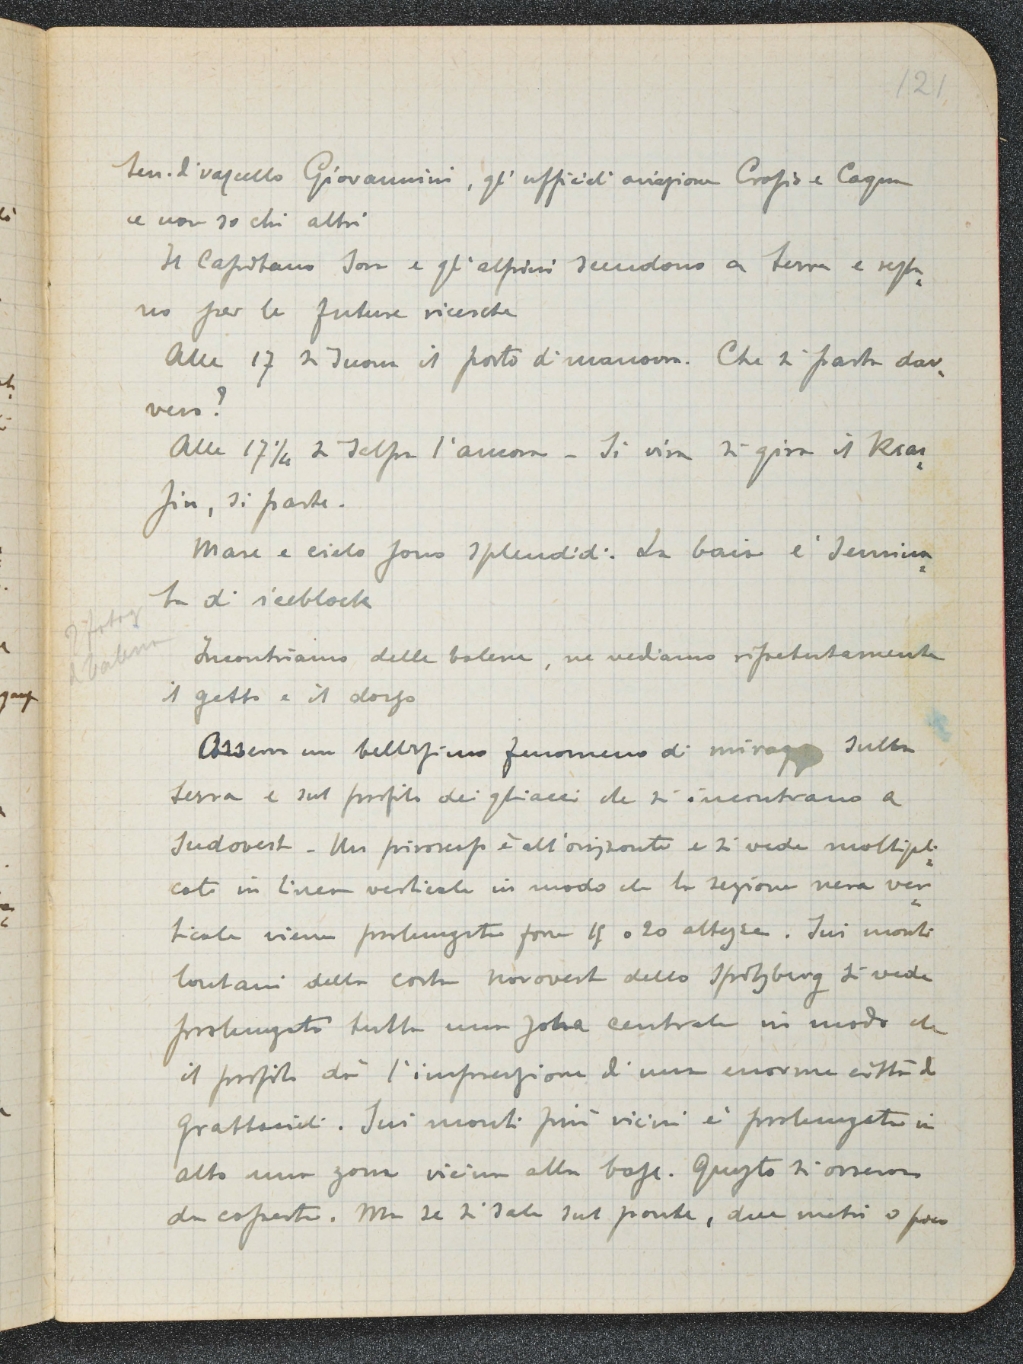 121
ten. di vascello Giovannini, gli ufficiali aviazione Crosio e Cagna
e non so chi altri
Il Capitano Sora e gli alpini scendono a terra e resta„
no per le future ricerche
Alle 17 si suona il posto di manovra. Che si parta dav„
vero?
Alle 17¼ si salpa l'ancora – Si vira si gira il Kras„
sin, si parte.
Mare e cielo sono splendidi. La baia è semina„
ta di iceblock
2 fotog
di balena
Incontriamo delle balene, ne vediamo ripetutamente
il getto e il dorso
Osservo un bellissimo fenomeno di miraggio sulla
terra e sul profilo dei ghiacci che si incontrano a
sudovest – Un piroscafo è all'orizzonte e si vede moltipli„
cato in linea verticale in modo che la sezione nera ver„
ticale viene prolungata forse 15 o 20 altezze. Sui monti
lontani della costa norovest dello Spitzberg si vede
prolungata tutta una zona centrale in modo che
il profilo dà l'impressione di una enorme città di
grattacieli. Sui monti più vicini è prolungata in
alto una zona vicina alla base. Questo si osserva
da coperta. Ma se si sale sul ponte, due metri o poco